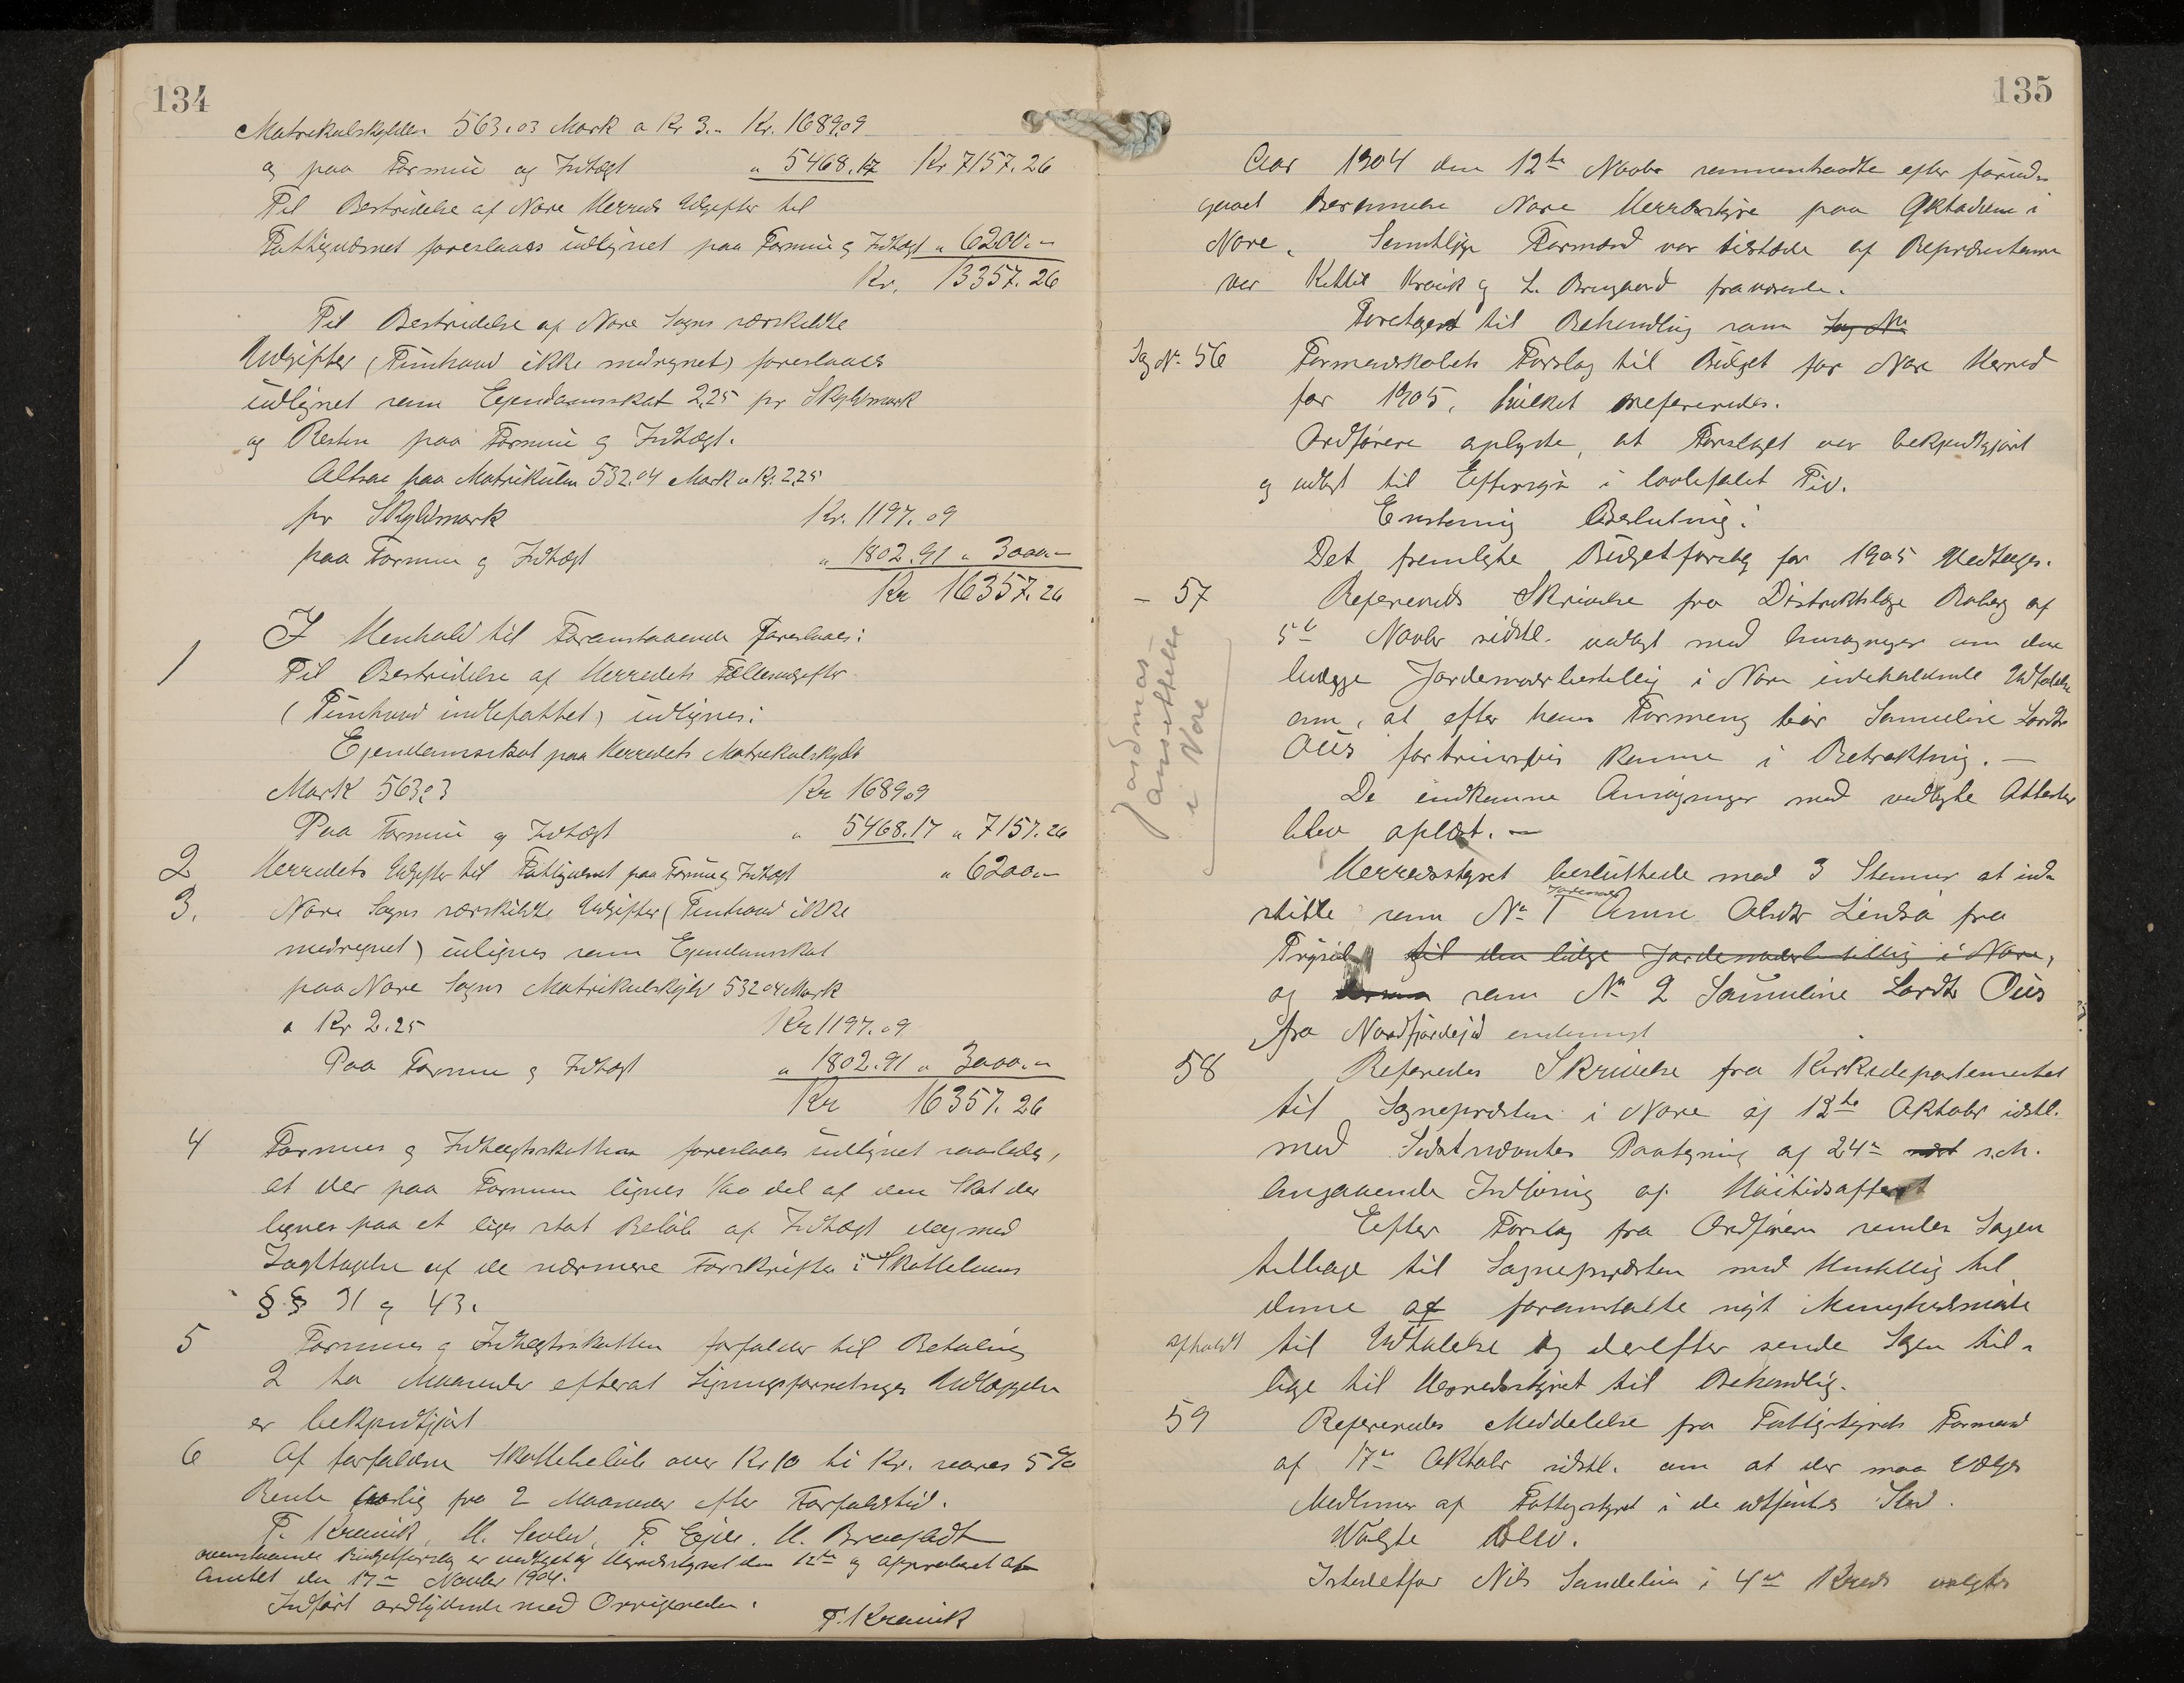 134
Matrikulskylden 563.03 Mark a Kr 3.- Kr. 1689.09
og paa Formue og Indtægt " 5468.17 Kr 7157.26
Til Bestridelse af Nore Herreds Udgifter til
Fattigvæsnet foreslaaes udlignet paa Formue og Indtægt " 6200.-
Kr. 13357.26
Til Bestridelse af Nore Sogns særskildte
Udgifter (Tinhand ikke medregnet) foreslaaes
udlignet som Ejendomsskat 2.25 pr Skyldmark
og Resten paa Formue og Indtægt.
Altsaa paa Matrikulen 532.04 Mark a Kr. 2.25
pr Skyldmark Kr. 1197.09
paa Formue og Indtægt " 1802.91 " 3000.-
Kr 16357.26
I Henhold til Foranstaaende foreslaaes:
1 Til Bestridelse af Herredets Fællesudgifter
(Tinhand indbefattet) udlignes:
Ejendomsskat paa Herredets Matrikulskyld
Mark 563.03 Kr 1689.09
Paa Formue og Indtægt " 5468.17 " 7157.26
2 Herredets Udgifter til Fattigvæsnet paa Formue og Indtægt " 6200.-
3. Nore Sogns særskildte Udgifter (Tinhand ikke
medregnet) udlignes som Ejendomsskat
paa Nore Sogns Matrikulskyld 532.04 Mark
a Kr 2.25 Kr 1197.09
Paa Formue og Indtægt " 1802.91 " 3000.-
Kr 16357.26
4 Formues og Indtægtsskatten foreslaaes udlignet saaledes,
at der paa Formuen lignes 1/40 del af den Skat der
lignes paa et lige stort Beløb af Indtægt dog med
Iagttagelse af de nærmere Forskrifter i Skattelovens
§.§ 31 og 43.
5 Formues og Indtægtsskatten forfalder til Betaling
2 to Maaneder efterat Ligningsforretningens Udlæggelse
er bekjendtgjort
6 Af forfaldne Skattebeløb over Kr 10 ti Kr. svares 5 %
Rente aarlig fra 2 Maaneder efter Forfaldstid.
T. Kravik, H. Sevle, T. Ejde. H. Braafladt
ovenstaaende Budgetforslag er vedtaget af Herredsstyret den 12te og approberet af
Amtet den 17de Novbr 1904.
Indført ordlydende med Originalen.
T. Kravik
135
Aar 1904 den 12te Novbr sammentraadte efter forud-
gaaet Berammelse Nore Herredsstyre paa Oktadeen i
Nore. Samtlige Formænd var tilstede af Repræsentanter
var Kittil Kravik og L. Brugaard fraværende.
Foretaget til Behandling som Sag No
Sag No 56 Formandskabets Forslag til Budget for Nore Herred
for 1905, hvilket refereredes.
Ordføreren oplyste, at Forslaget var bekjendtgjort
og udlagt til Eftersyn i lovbefalet Tid.
Enstemig Beslutning:
Det fremlagte Budgetforslag for 1905 vedtages.
– 57 Refereredes Skrivelse fra Distriktslæge Roberg af
5te Novbr sidstl. vedlagt med Ansøgninger om den
ledige Jordemoderbestilling i Nore indeholdende Udtalelse
om, at efter hans Formening bør Samueline Lardtr
Ous fortrinsvis komme i Betraktning. –
De indkomne Ansøgninger med vedlagte Attester
blev oplæst. –
Jordmoransettelse
i Nore
Herredsstyret besluttede med 3 Stemmer at ind-
Jordemoder
stille som No 1 Anne Olsdtr Lindså fra
Trysil til den ledige Jordemoderbestilling i Nore,
og som No 2 Samueline Lardtr Ous
fra Nordfjordejd enstemigt
58 Referedes Skrivelse fra Kirkedepartementet
til Sognepræsten i Nore af 12te Oktobr sidstl.
med Sidstnævntes Paategning af 24de s.M.
angaaende Indføring af Høitidsoffer
Efter Forslag fra Ordføreren sendes Sagen
tilbage til Sognepræsten med Henstilling til
denne at foranstalte nyt Menighedsmøde
afholdt til Udtalelse og derefter sende Sagen til-
bage til Herredsstyret til Behandling.
59 Refereredes Meddelelse fra Fattigstyrets Formand
af 17de Oktobr sidstl. om at der maa vælges
Medlemmer af Fattigstyret i de udtrædendes Sted.
Valgte blev.
Istedetfor Nils Sandelien i 4de Kreds valgtes